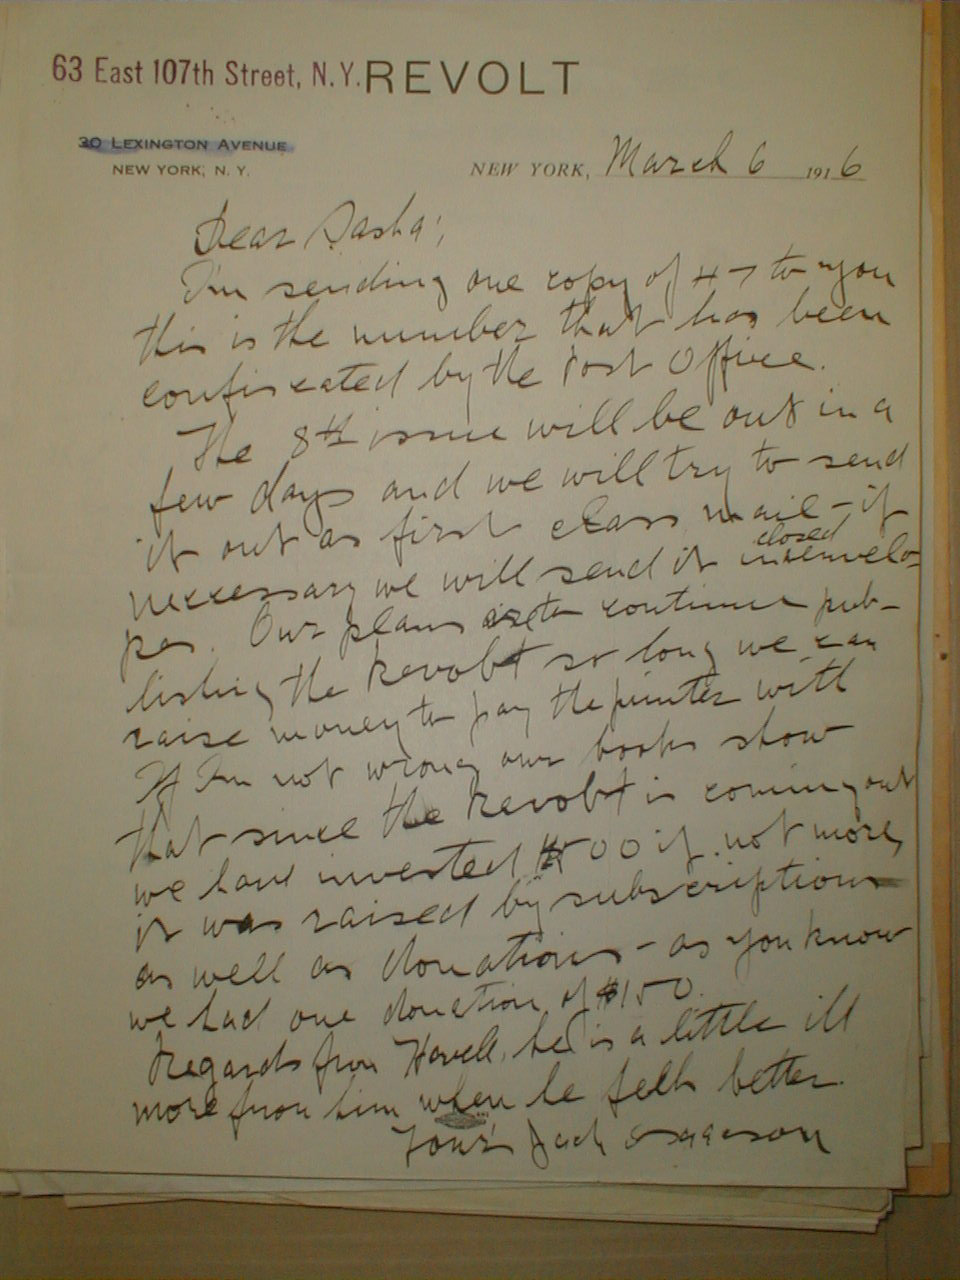 63 East 107th Street, N.Y. REVOLT
30 LEXINGTON AVENUE
NEW YORK, N. Y.
NEW YORK, March 6 1916
Dear Sasha,
I'm sending one copy of # 7 to you
this is the number that has been
confiscated by the Post Office.
The 8th issue will be out in a
few days and we will try to send
it out as first class mail - if
necessary we will send it in closed envelo-
pes. Our plan is to continue pub-
lishing the Revolt so long we can
raise money to pay the printer with
If I'm not wrong our books show
that since the Revolt is coming out
we have invested if not more,
it was raised by subscriptions
as well as donations - as you know
we had one donation of $150.
Regards from Havel, he is a little ill
more from him when he feels better.
Yours Jack Isaacson